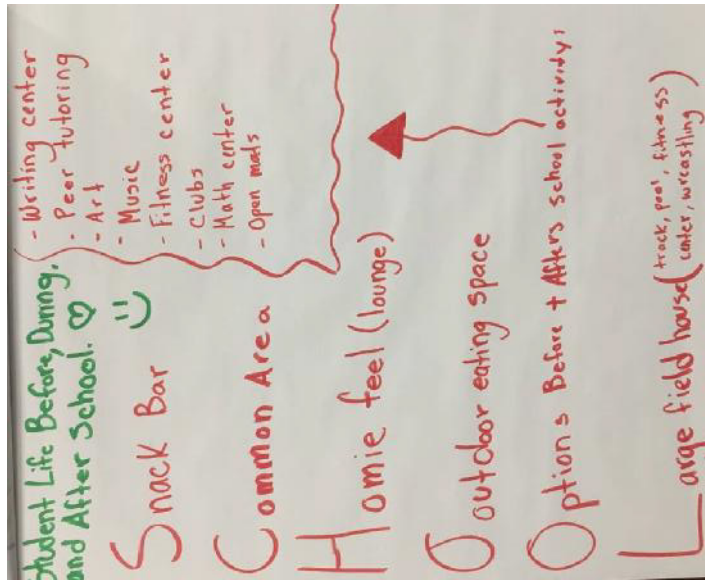 Student Life Before, During,
and After School. ♡
Snack Bar
Common Area
Homie feel (lounge)
Outdoor eating space
Options Before + Afters school activity:
Large field house (track, pool, fitness
center, wreastling)
- Writing center
- Peer tutoring
- Art
- Music
- Fitness center
- Clubs
- Math center
- Open mats